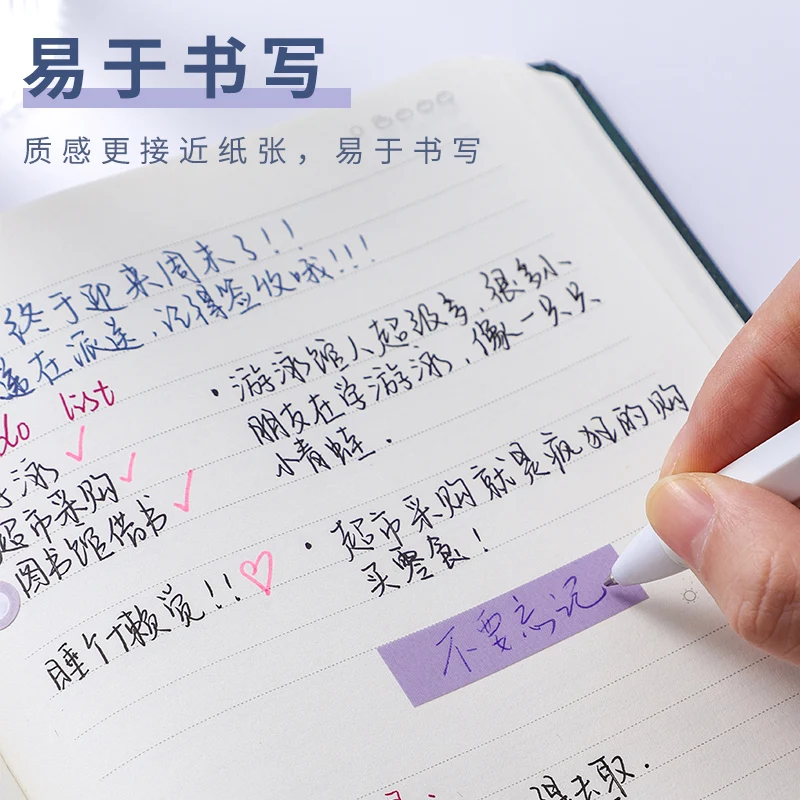 易于书写
质感更接近纸张，易于书写
终于迎来周末了!!
在派送,记得签收哦!!!
do list
泳✓
超市采购✓
图书馆借书✓
睡个懒觉!!♡
·游泳馆人超级多,很多小
朋友在学游泳,像一只只
小青蛙.
·超市采购就是疯狂的购
买零食!
不要忘记
得去取.